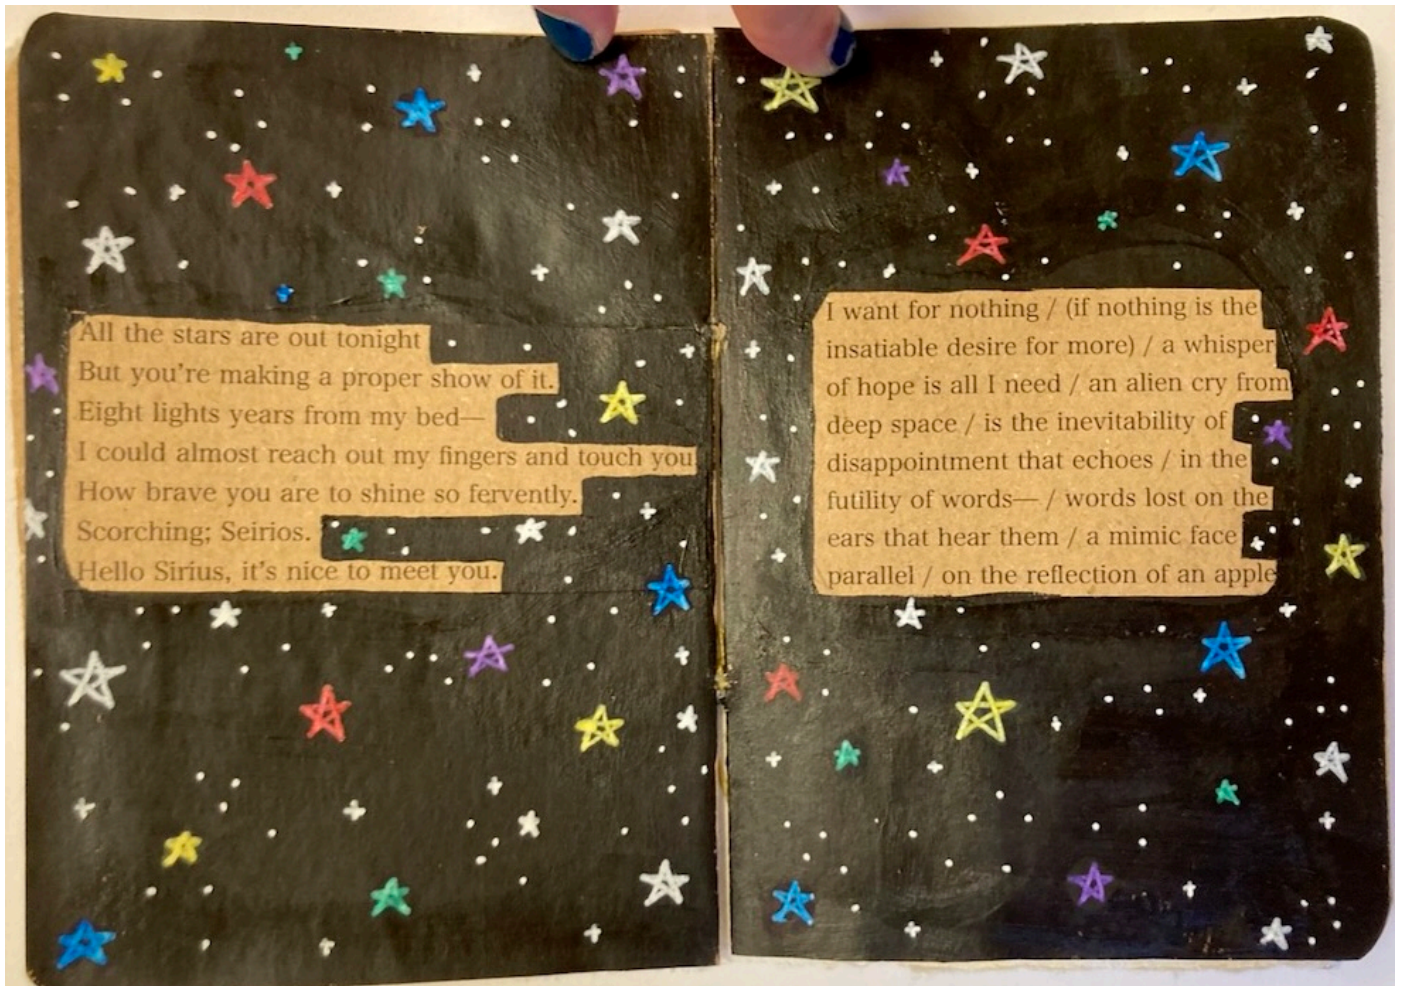 All the stars are out tonight
But you're making a proper show of it.
Eight lights years from my bed—
I could almost reach out my fingers and touch you
How brave you are to shine so fervently.
Scorching; Seirios.
Hello Sirius, it's nice to meet you.
I want for nothing / (if nothing is the
insatiable desire for more) / a whisper
of hope is all I need / an alien cry from
deep space / is the inevitability of
disappointment that echoes / in the
futility of words— / words lost on the
ears that hear them / a mimic face
parallel / on the reflection of an apple